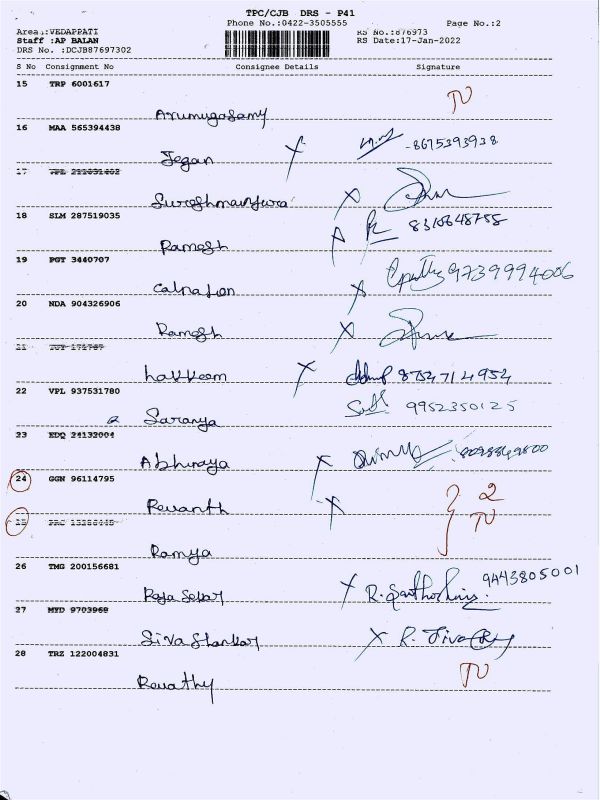 TPC/CJB DRS - P41
Phone No.:0422-3505555 Page No.:2
Area :VEDAPPATI RS No.:876973
Staff :AP BALAN RS Date:17-Jan-2022
DRS No. :DCJB87697302
S No Consignment No Consignee Details Signature
15 TRP 6001617
TU
Arumugasamy
16 MAA 565394438
8675393938
Jegan
17
18 SLM 287519035
Ramesh
19 PGT 3440707
9739994006
20 NDA 904326906
Ramesh
21
8754714954
22 VPL 937531780
9952350125
Saranya
23 EDQ 24132004
Abhinaya
24 GGN 96114795
Revanth
2
TU
25
Ramya
26 TMG 200156681
9443805001
Raja Sekar
27 MYD 9703968
Siva Shankar
R. Siva
28 TRZ 122004831
TU
Revathy